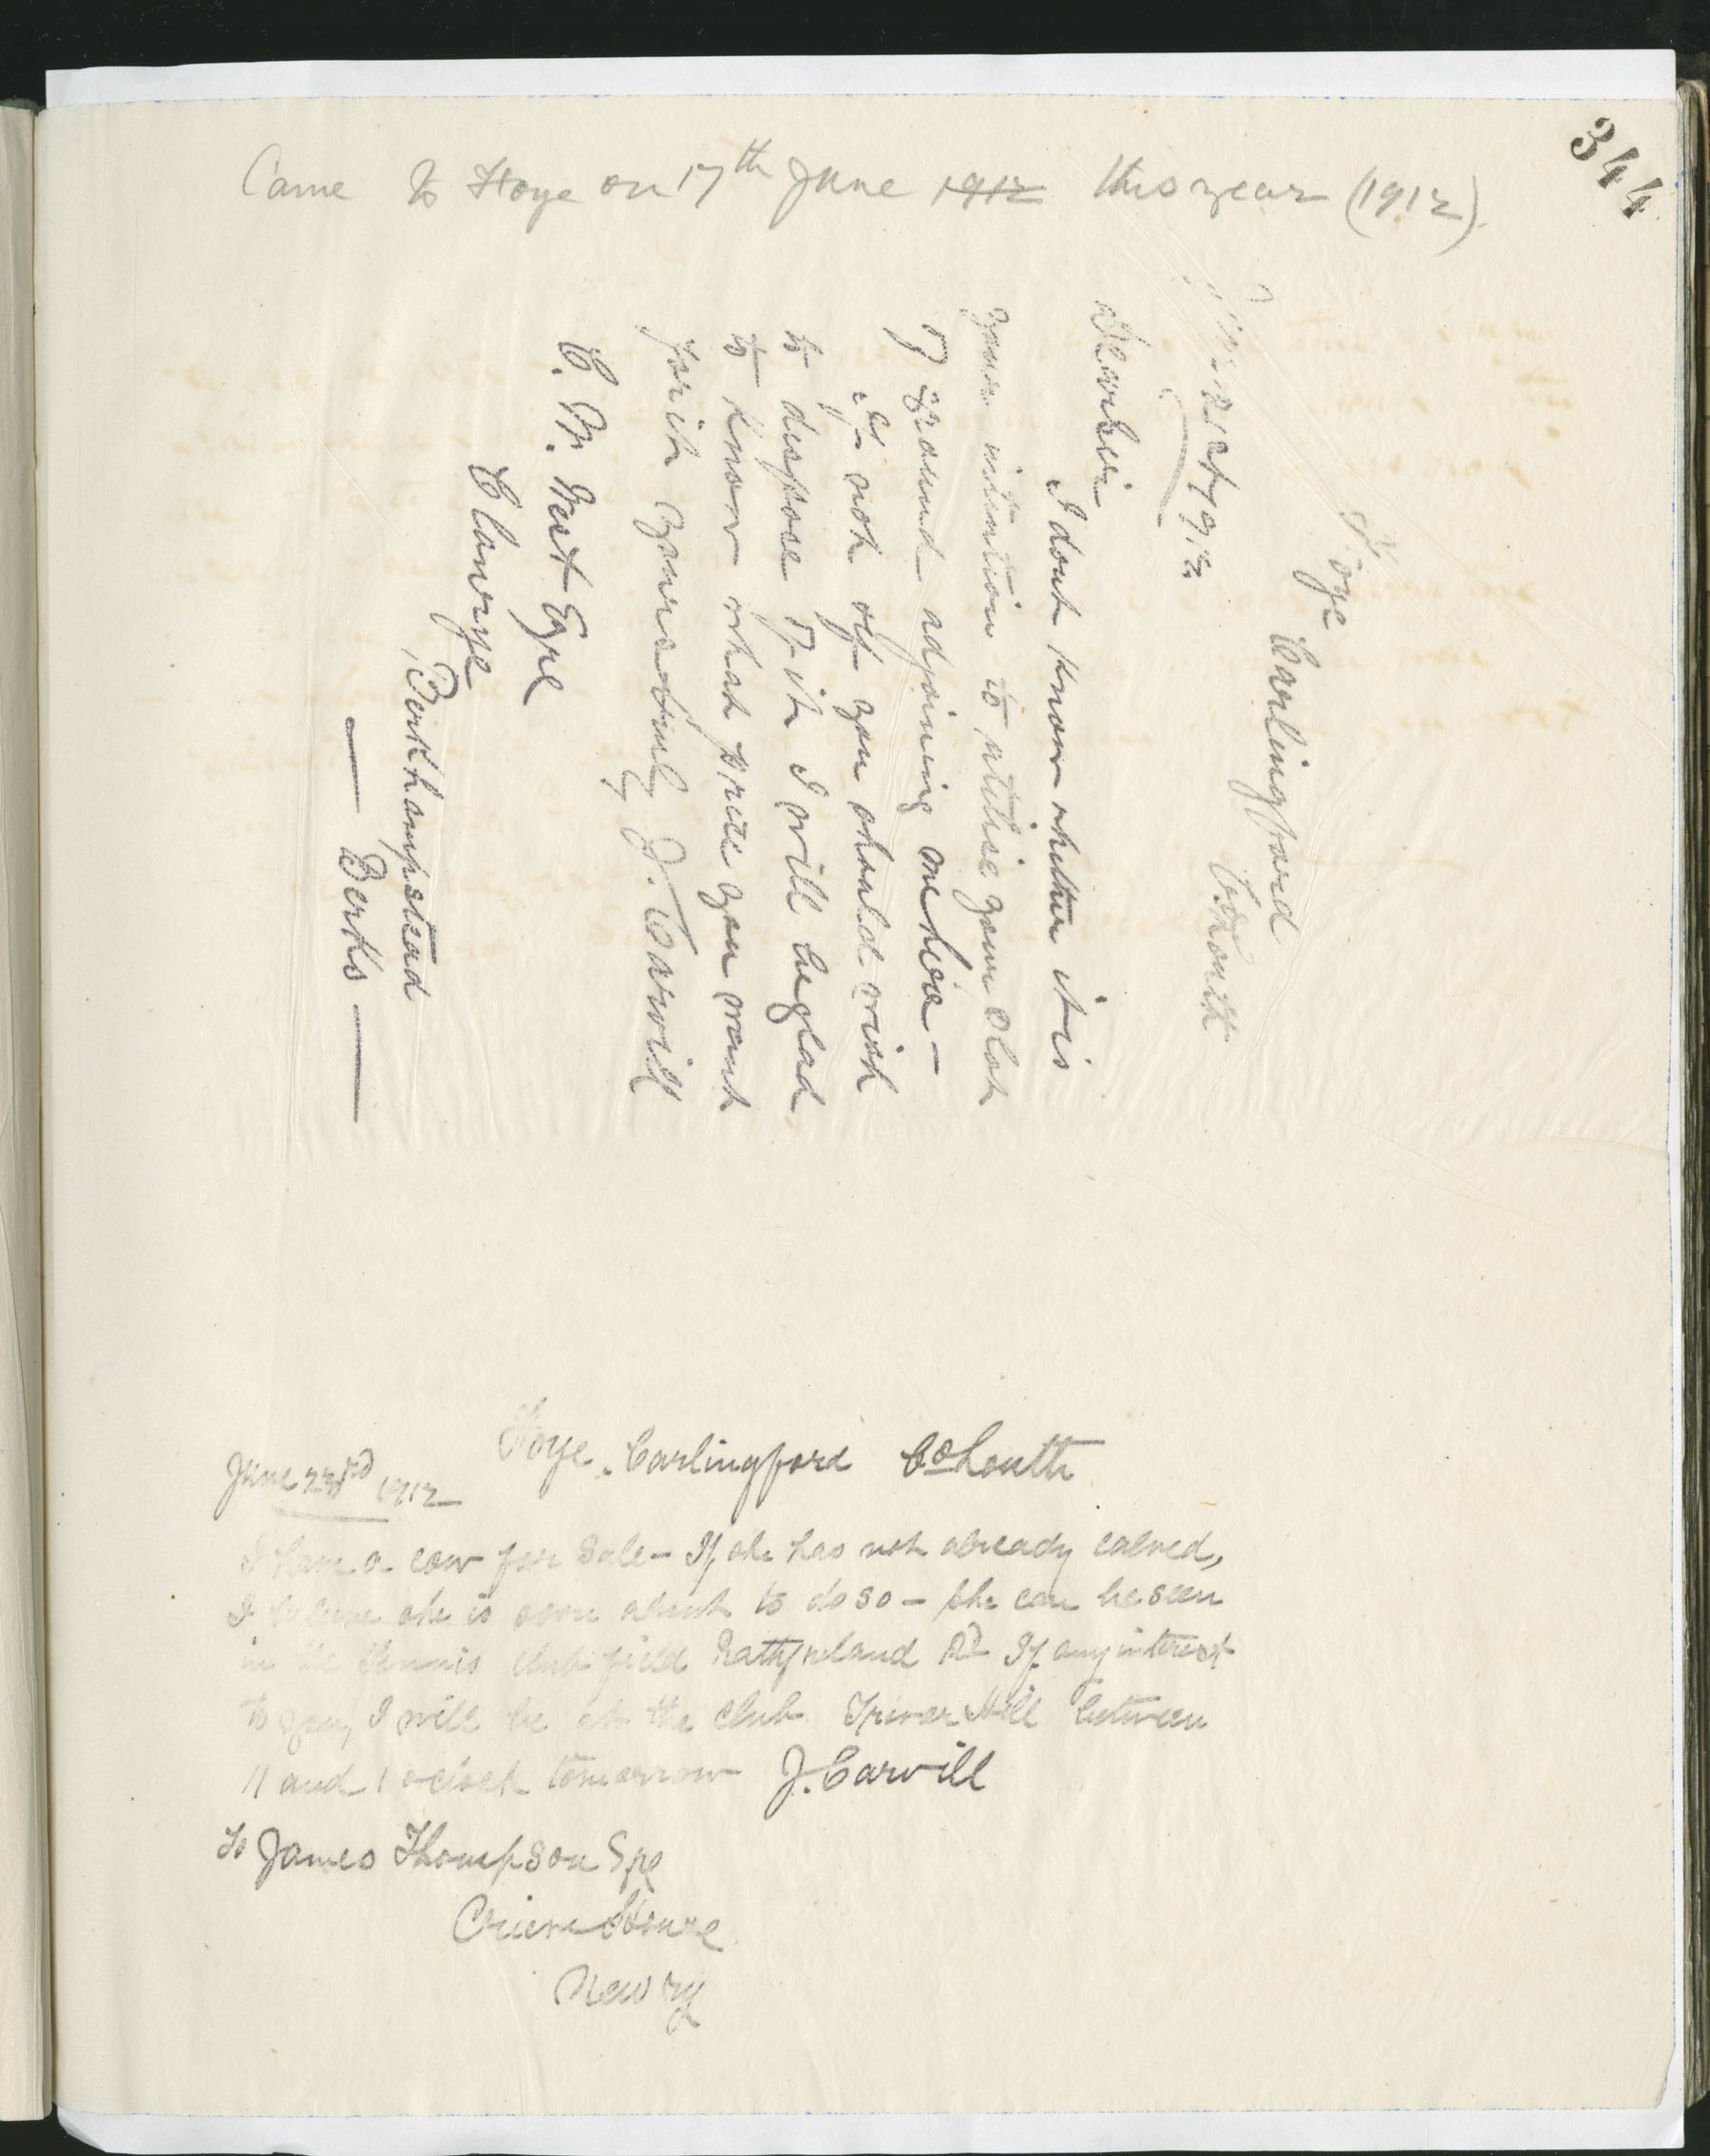 344
Came to Foye on 17th June 1912 this year (1912)
Foye
Carlingford
Co Louth
June 21st 1912
Dear Sir
I dont know whether it is
your intention to utilise your plot
of ground adjoining me here –
If not or if you should wish
to dispose of it I will be glad
to know what price you want
for it Yours truly J. Carvill
C. M. West Esqre
Clanorye
Berkhampstead
Berks
Foye. Carlingford Co Louth
June 23rd 1912
I have a cow for Sale – If she has not already calved,
I believe she is soon about to do so – she can be seen
in the Tennis Club field Rathfriland Rd If any interest
to you, I will be at the Club Trevor Hill between
11 and 1 oclock tomorrow J. Carvill
To James Thompson Esqre
House
Newry